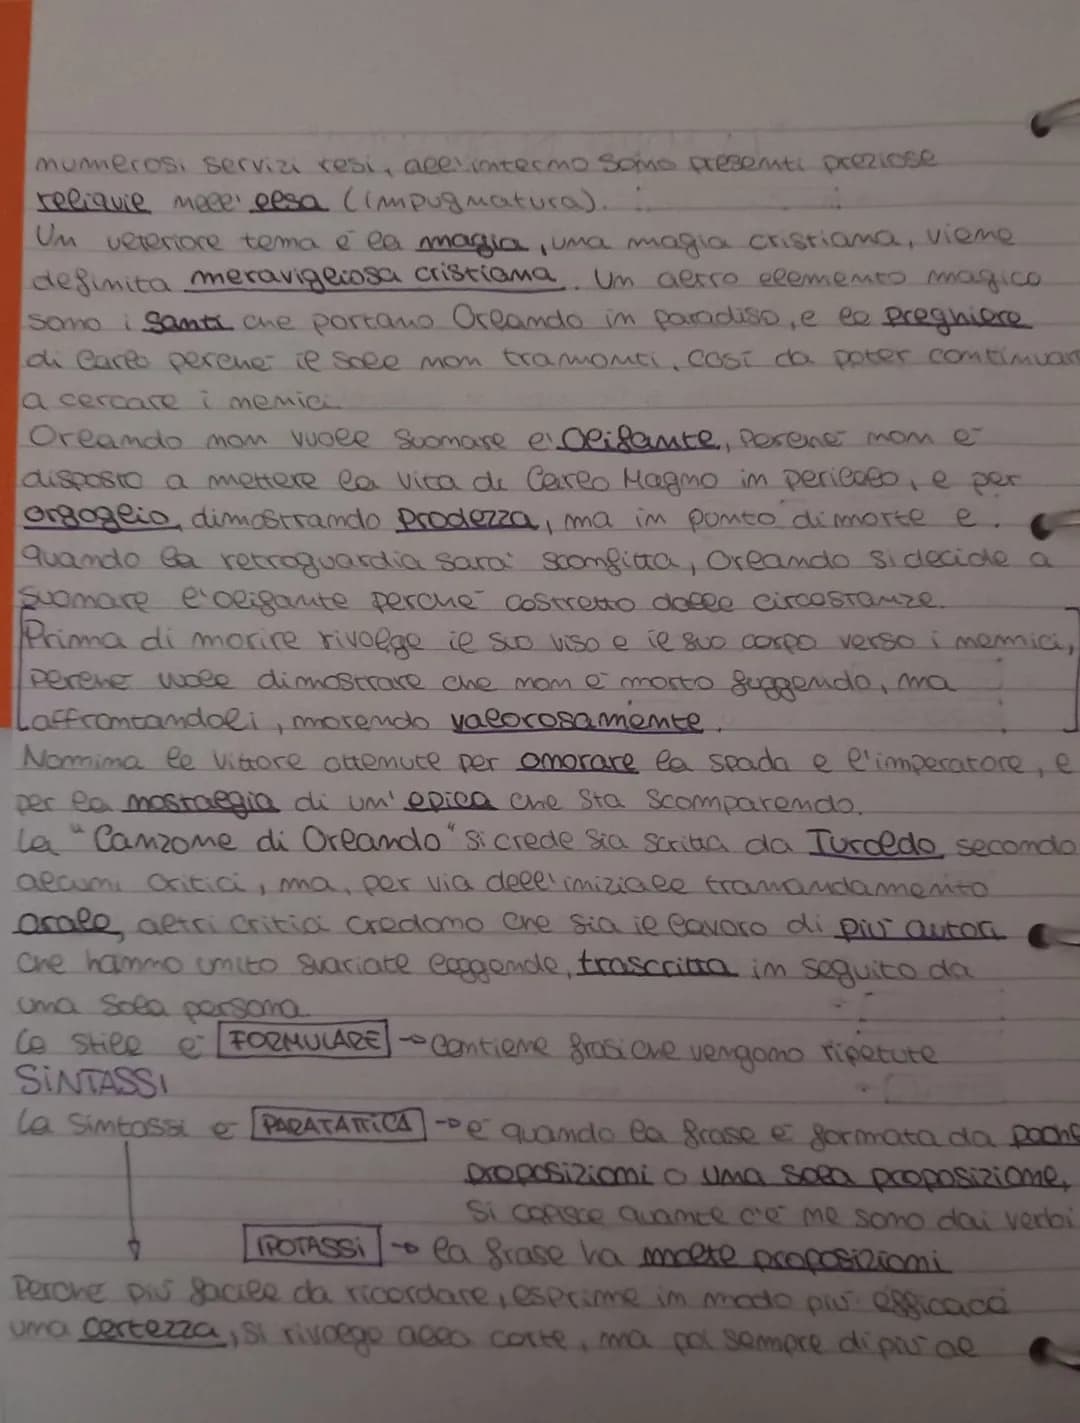 numerosi servizi resi, all'interno sono presenti preziose
reliquie nell'elsa (impugnatura).
Un ulteriore tema è la magia, una magia cristiana, viene
definita meravigliosa cristiana. Un altro elemento magico
sono i santi che portano Orlando in paradiso, e le preghiere
di Carlo perché il sole non tramonti, così da poter continuar
a cercare i nemici
Orlando non vuole suonare l'Olifante, perché non è
disposto a mettere la vita di Carlo Magno in pericolo, e per
orgoglio, dimostrando prodezza, ma in punto di morte e.
quando la retroguardia sarà sconfitta, Orlando si decide a
suonare l'olifante perché costretto dalle circostanze.
Prima di morire rivolge il suo viso e il suo corpo verso i nemici,
perché vuole dimostrare che non è morto fuggendo, ma
affrontandoli, morendo valorosamente.
Nomina le vittore ottenute per onorare la spada e l'imperatore, e
per la nostalgia di un'epica che sta scomparendo.
La "Canzone di Orlando" si crede sia scritta da Turoldo secondo
alcuni critici, ma, per via dell'iniziale tramandamento
orale, altri critici credono che sia il lavoro di più autori
che hanno unito svariate leggende, trascritta in seguito da
una sola persona.
Lo stile è FORMULARE → contiene frasi che vengono ripetute
SINTASSI
La sintassi è PARATATTICA → è quando la frase è formata da poche
proposizioni o una sola proposizione,
si capisce quante ce ne sono dai verbi
IPOTASSI → la frase ha molte proposizioni
Perché più facile da ricordare, esprime in modo più efficace
una certezza, si rivolge alla corte, ma poi sempre di più al